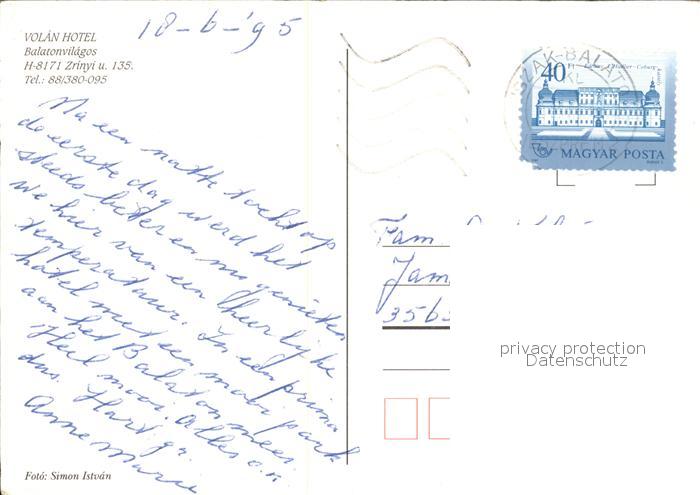 VOLÁN HOTEL
Balatonvilágos
H-8171 Zrínyi u. 135.
Tel.: 88/380-095
18-6-'95
Na een natte tocht op
de eerste dag werd het
steeds beter en nu genieten
we hier van een heerlijke
temperatuur. In een prima
hotel met een mooi park
aan het Balatonmeer.
Heel mooi. Alles o.k.
das. Hart. gr.
Annemarie
Fotó: Simon István
40 Ft
MAGYAR POSTA
Fam.
Jam
3563
privacy protection
Datenschutz